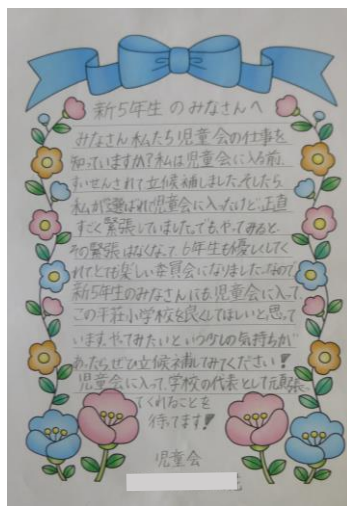 新5年生のみなさんへ
みなさん私たち児童会の仕事を
知っていますか?私は児童会に入る前、
すいせんされて立候補しました。そしたら
私が選ばれ児童会に入ったけど正直
すごく緊張していました。でも、やってみると
その緊張はなくなって6年生も優しくしてく
れてとても楽しい委員会になりました。なので
新5年生のみなさんにも児童会に入って、
この平荘小学校を良くしてほしいと思って
います。やってみたいという少しの気持ちが
あったらぜひ立候補してみてください!
児童会に入って、学校の代表として
てくれることを
待ってます!
児童会